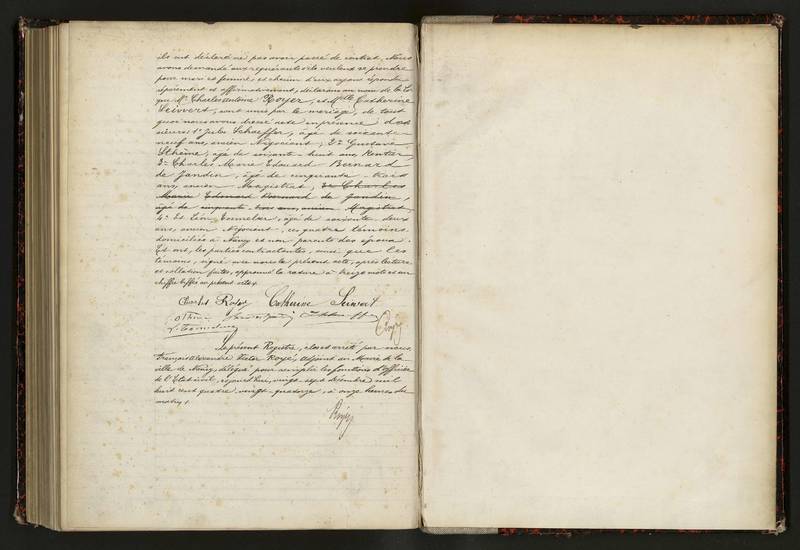 ils ont déclaré ne pas avoir passé de contrat, Nous
avons demandé aux requérants s'ils veulent se prendre
pour mari et femme, et chacun d'eux ayant répondu
séparément et affirmativement, déclarons au nom de la Loi
que Mr Charles Antoine Royer, et Mlle Catherine
Seivert, sont unis par le mariage, de tout
quoi nous avons dressé acte en présence des
sieurs 1° Jules Schaeffer, âgé de soixante
neuf ans, ancien Négociant, 2° Gustave
Othine, âgé de soixante-huit ans, Rentier,
3° Charles Marie Edouard Bernard
de Jandin, âgé de cinquante-trois
ans, ancien Magistrat, 3° Charles
Marie Edouard Bernard de Jandin,
âgé de cinquante-trois ans, ancien Magistrat,
4° Et Léon, âgé de soixante deux
ans, ancien Négociant, ces quatre témoins
domiciliés à Nancy et non parents des époux.
Et ont, les parties contractantes, ainsi que les
témoins, signé avec nous le présent acte, après lecture
et collation faites, approuvé la rature de treize mots et un
chiffre biffés au présent acte.
Charles Royer Catherine Seivert
Le présent Registre, clos et arrêté par nous,
François Alexandre Victor Royé, Adjoint au Maire de la
ville de Nancy, délégué pour remplir les fonctions d'Officier
de l'Etat civil, cejourd'hui, vingt-sept décembre mil
huit cent quatre-vingt-quatorze, à onze heures du
matin.